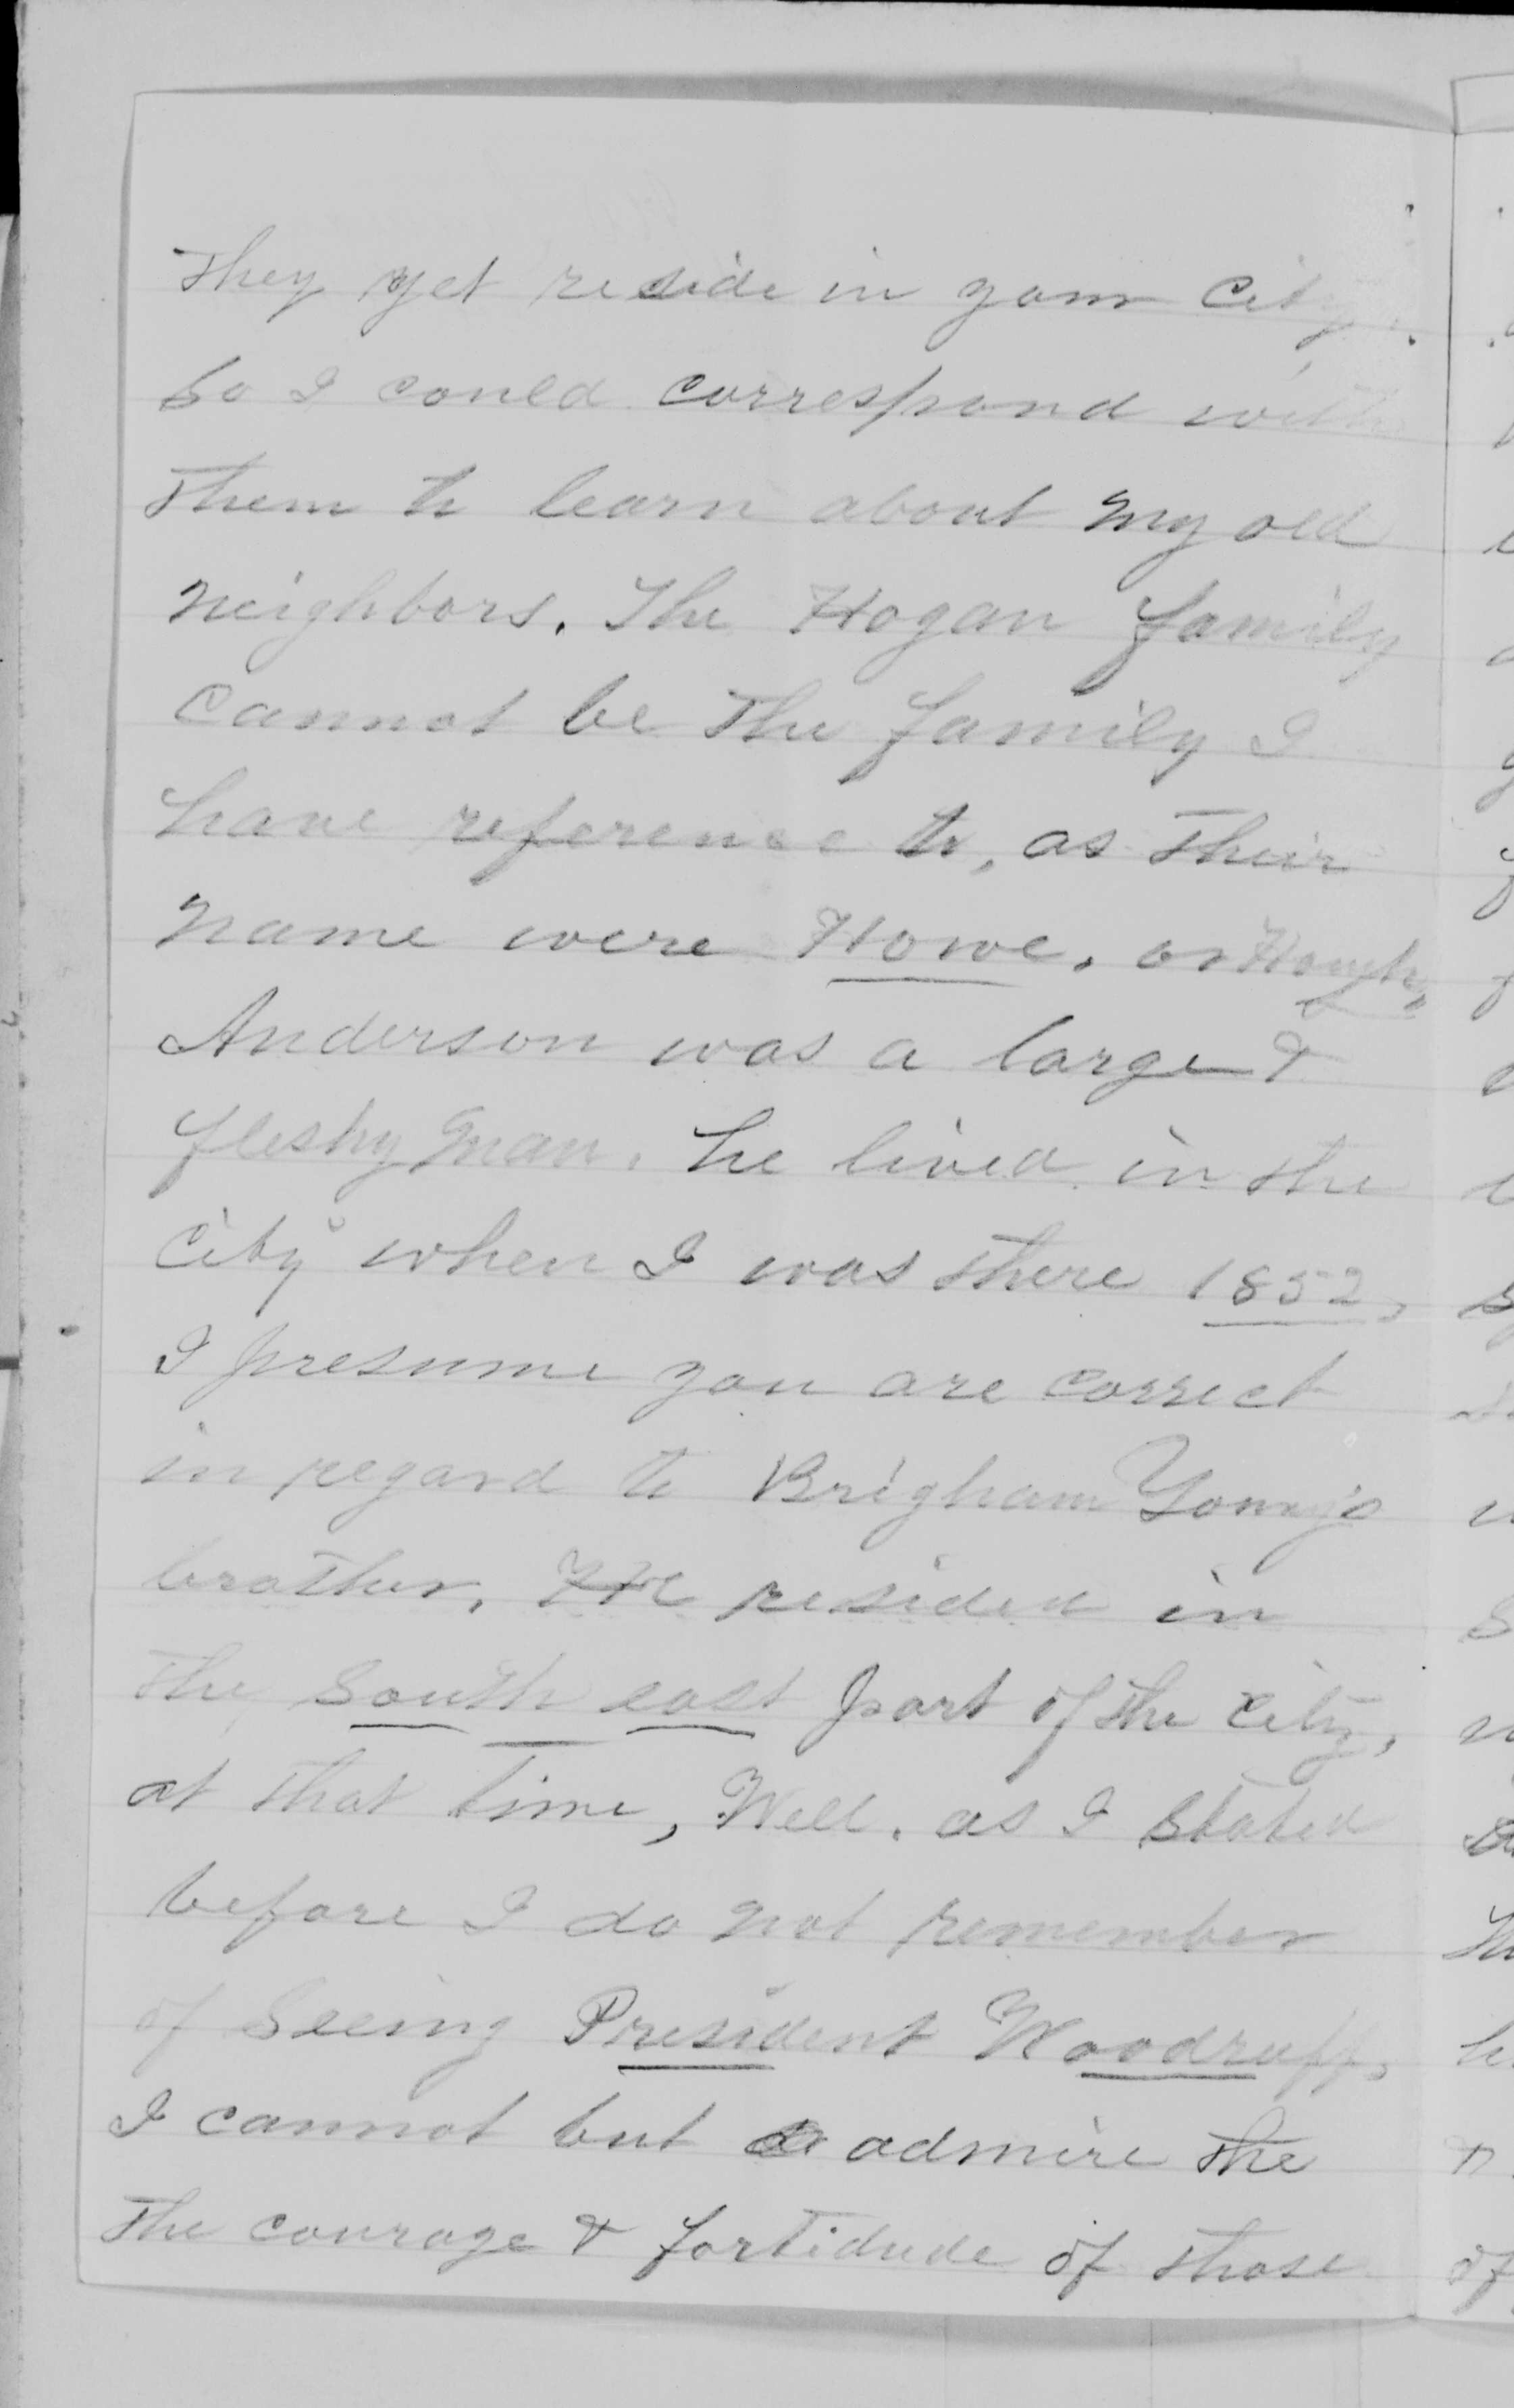 They yet reside in your City.
So I could correspond with
them to learn about my old
neighbors. The Hogan family
cannot be the family I
have reference to, as their
name were Howe, or Hough,
Anderson was a large &
fleshy man, he lived in the
City when I was there 1852,
I presume you are correct
in regard to Brigham Young's
brother, He resided in
the South east part of the City,
at that time, Well, as I stated
before I do not remember
of Seeing President Woodruff,
I cannot but admire the
the courage & fortidude of those